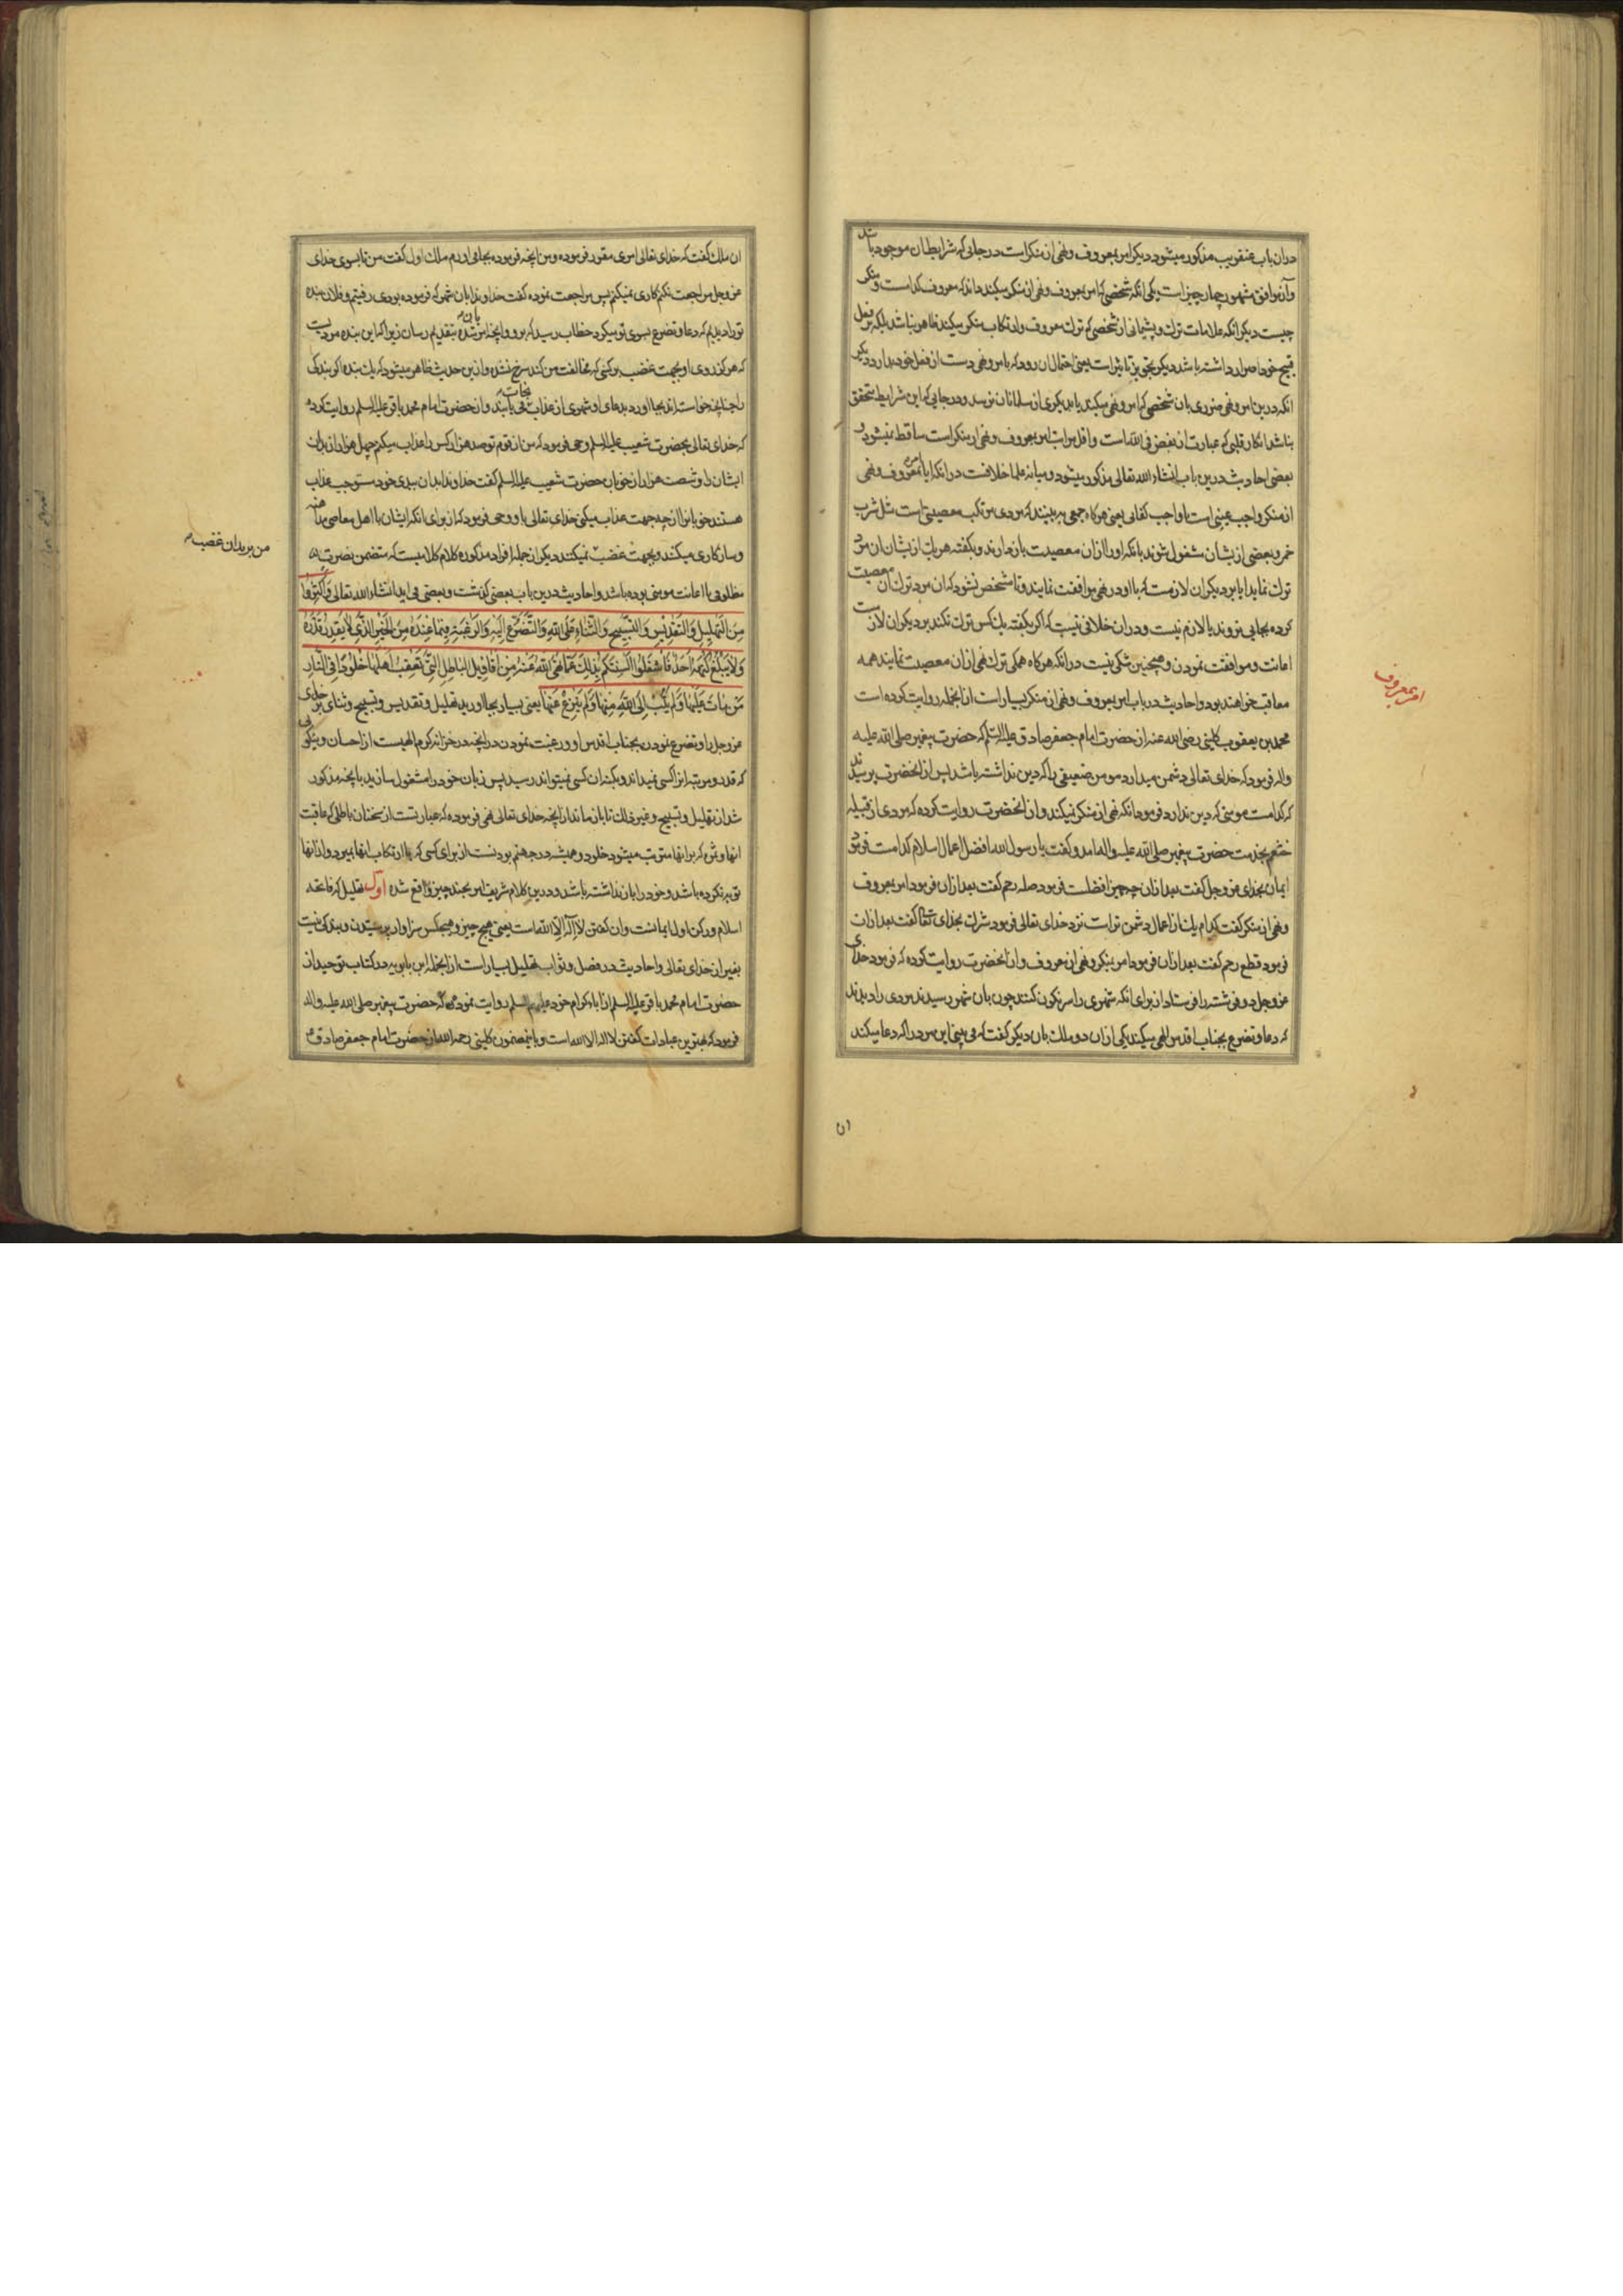 دران باب عنقریب مذکور میشود دیکر امر بمعروف و نهی از منکر است در جائی که شرایط ان موجود باشد
وان موافق مشهور چهار چیز است یکی انکه شخصی که امر بمعروف و نهی از منکر میکند داند که معروف کدام است و منکر
چیست دیکر انکه علامات ترک و پشیمانی از شخصی که ترک معروف و ارتکاب منکر میکند ظاهر نباشد بلکه بر فعل
قبیح خود اصرار داشته باشد دیکر تجویز تاثیر است یعنی احتمال ان رود که بامر و نهی دست از فعل خود بدارد دیکر
انکه درین امر و نهی ضرری بان شخصی که امر و نهی میکند یا بدیکری از مسلمانان نرسد و در جایی که این شرایط متحقق
نباشد انکار قلبی که عبارت از بغض فی الله است و اقل مراتب امر بمعروف و نهی از منکر است ساقط نمیشود و
بعضی احادیث درین باب انشاء الله تعالی مذکور میشود و میانه علما خلافست در انکه ایا امر بمعروف و نهی
از منکر واجب عینی است یا واجب کفائی یعنی هرکاه جمعی به بینند که مردی مرتکب معصیتی است مثل شرب
خمر و بعضی از یشان مشغول شوند بانکه او را ازان معصیت باز دارند و بکفته هر یک از یشان ان مرد
ترک نماید ایا بر دیکران لازمست که با او در نهی موافقت نمایند و تا مشخص نشود که ان مرد ترک ان معصیت
کرده بجایی نروند یا لازم نیست و دران خلافی نیست که اکر بکفته یک کس ترک نکند بر دیکران لازمست
اعانت و موافقت نمودن و همچنین شکی نیست در انکه هرکاه همکی ترک نهی ازان معصیت نمایند همه
معاقب خواهند بود و احادیث در باب امر بمعروف و نهی از منکر بسیار است از انجمله روایت کرده است
محمد بن یعقوب کلینی رضی الله عنه از حضرت امام جعفر صادق علیه السلم که حضرت پیغمبر صلی الله علیه
واله فرمود که خدای تعالی دشمن میدارد مومن ضعیفی را که دین نداشته باشد پس از انحضرت پرسیدند
که کدامست مومنی که دین ندارد فرمود انکه نهی از منکر نمیکند و از انحضرت روایت کرده که مردی از قبیله
خثعم بخدمت حضرت پیغمبر صلی الله علیه واله امد و کفت یا رسول الله افضل اعمال اسلام کدامست فرمود
ایمان بخدای عز و جل کفت بعد ازان چه چیز افضلست فرمود صله رحم کفت بعد ازان فرمود امر بمعروف
و نهی از منکر کفت کدام یک از اعمال دشمن تر است نزد خدای تعالی فرمود شرک بخدای تعالی کفت بعد ازان
فرمود قطع رحم کفت بعد ازان فرمود امر بمنکر و نهی از معروف و از انحضرت روایت کرده که فرمود خدای
عز و جل دو فرشته را فرستاد از برای انکه شهری را سرنکون کنند چون بان شهر رسیدند مردی را دیدند
که دعا و تضرع بجناب اقدس الهی میکند یکی ازان دو ملک بان دیکری کفت که می بینی این مرد را که دعا میکند
امر بمعروف
ان
ان ملک کفت که خدای تعالی امری مقرر فرموده و من انچه فرموده بجا می اورم ملک اول کفت من تا بسوی خدای
عز و جل مراجعت نکنم کاری نمیکنم پس مراجعت نموده کفت خداوندا بان شهر که فرموده بودی رفتیم و فلان بنده
تو را دیدیم که دعا و تضرع بسوی تو میکرد خطاب رسید که برو و انچه بان امر شده بتقدیم رسان زیرا که این بنده مردیست
که هرکز روی او بجهت غضب بر کسی که مخالفت من کند سرخ نشده و ازین حدیث ظاهر میشود که یک بنده اکر بندکی
را چنانچه خواسته اند بجا اورد بدعای او شهری از عذاب نجات می یابند و از حضرت امام محمد باقر علیه السلم روایت کرده
که خدای تعالی بحضرت شعیب علیه السلم وحی فرمود که من از قوم تو صد هزار کس را عذاب میکنم چهل هزار از بدان
ایشان را و شصت هزار از خوبان حضرت شعیب علیه السلم کفت خداوندا بدان ببدی خود مستوجب عذاب
هستند خوبانرا از چه جهت عذاب میکنی خدای تعالی باو وحی فرمود که از برای انکه ایشان با اهل معاصی مداهنه
و سازکاری میکنند و بجهت غضب نمیکنند دیکر از جمله افراد مذکوره کلام کلامیست که متضمن نصرت
مظلومی یا اعانت مومنی بوده باشد و احادیث درین باب بعضی کذشت و بعضی می اید انشاء الله تعالی فَاَكْثِرُوا
مِنَ التَّهْلِيلِ وَالتَّقْدِيسِ وَالتَّسْبِيحِ وَالثَّنَاءِ عَلَى اللهِ وَالتَّضَرُّعِ اِلَيْهِ وَالرَّغْبَةِ فِيمَا عِنْدَهُ مِنَ الْخَيْرِ الَّذِي لَا يَقْدِرُ قَدْرَهُ
وَلَا يَبْلُغُ كُنْهَهُ اَحَدٌ فَاشْغَلُوا اَلْسِنَتَكُمْ بِذٰلِكَ عَمَّا نَهَى اللهُ عَنْهُ مِنْ اَقَاوِيلِ الْبَاطِلِ الَّتِي تُعْقِبُ اَهْلَهَا خُلُودًا فِي النَّارِ
مَنْ مَاتَ عَلَيْهَا وَلَمْ يَتُبْ اِلَى اللهِ مِنْهَا وَلَمْ يَنْزِعْ عَنْهَا یعنی بسیار بجا اورید تهلیل و تقدیس و تسبیح و ثنای بر خدای
عز و جل را و تضرع نمودن بجناب اقدس او و رغبت نمودن در انچه در خزانه کرم الهیست از احسان و نیکویی
که قدر و مرتبه انرا کسی نمیداند و بکنه ان کسی نمیتواند رسید پس زبان خود را مشغول سازید بانچه مذکور
شد از تهلیل و تسبیح و غیر ذلک تا باز ماند از انچه خدای تعالی نهی فرموده که عبارتست از سخنان باطلی که عاقبت
انها و ثمره که بر انها مترتب میشود خلود و همیشه در جهنم بودنست از برای کسی که با ارتکاب انها بمیرد و از انها
توبه نکرده باشد و خود را باز نداشته باشد و درین کلام شریف امر بچند چیز واقع شده اول تهلیل که فاتحه
اسلام و رکن اول ایمانست و ان کفتن لا اله الا الله است یعنی هیچ چیز و هیچکس سزاوار پرستیدن و بندکی نیست
بغیر از خدای تعالی و احادیث در فضل و ثواب تهلیل بسیار است از انجمله ابن بابویه در کتاب توحید از
حضرت امام محمد باقر علیه السلم از اباء کرام خود علیهم السلم روایت نموده که حضرت پیغمبر صلی الله علیه واله
فرمود که بهترین عبادات کفتن لا اله الا الله است و باینمضمون کلینی رحمه الله از حضرت امام جعفر صادق
من بر بدان غضب